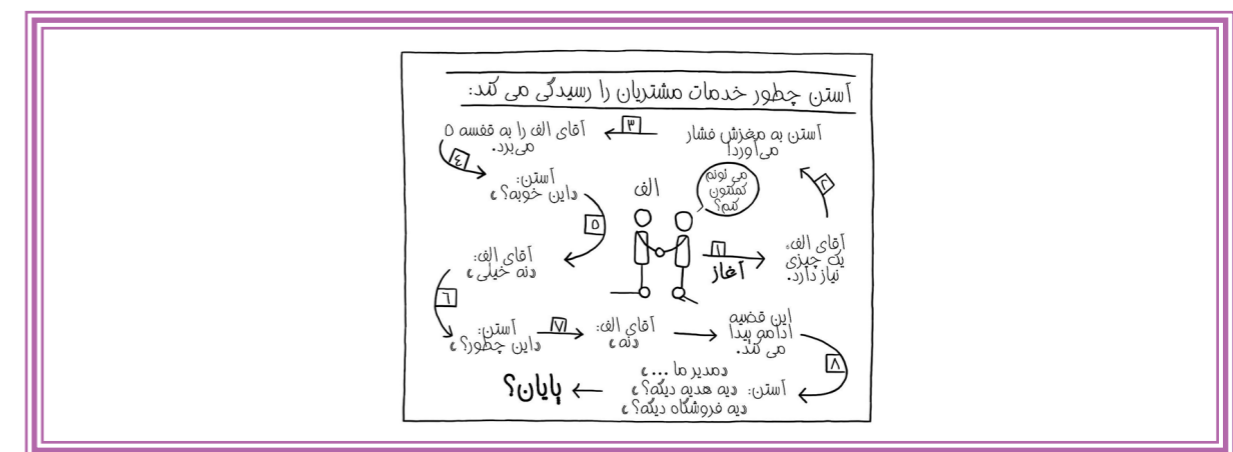 آستن چطور خدمات مشتریان را رسیدگی می کند:
الف
می تونم
کمکتون
کنم؟
۱
آغاز
آقای الف،
یک چیزی
نیاز دارد.
۲
آستن به مغزش فشار
می‌آورد!
۳
آقای الف را به قفسه ۵
می‌برد.
۴
آستن:
«این خوبه؟»
۵
آقای الف:
«نه خیلی»
۶
آستن:
«این چطور؟»
۷
آقای الف:
«نه»
این قضیه
ادامه پیدا
می کند.
۸
«مدیر ما ...»
آستن: «یه هدیه دیگه؟»
«یه فروشگاه دیگه؟»
پایان؟